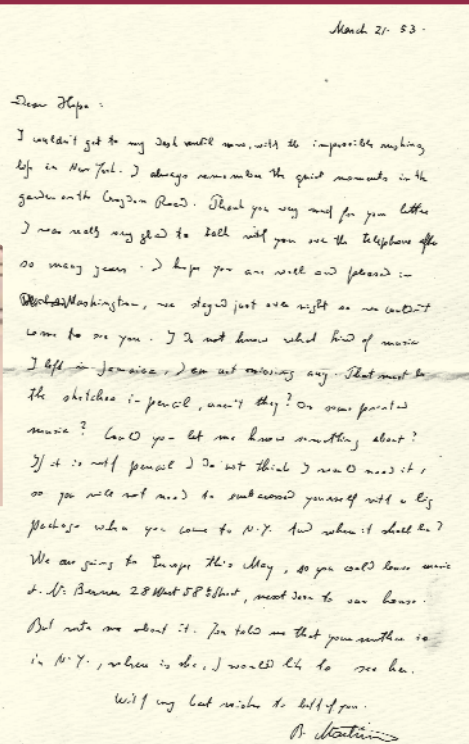 March 21. 53.
Dear Hope:
I couldn't get to my desk until now, with the impossible rushing
life in New York. I always remember the quiet moments in the
garden on the Croydon Road. Thank you very much for your letter
I was really very glad to talk with you over the telephone after
so many years. I hope you are well and pleased in
Washington, we stayed just over night so we couldn't
come to see you. I do not know what kind of music
I left in Jamaica, I am not missing any. That must be
the sketches in pencil, aren't they? Or some printed
music? Could you let me know something about?
If it is with pencil I do not think I would need it,
so you will not need to embarrassed yourself with a big
package when you come to N.Y. And when it shall be?
We are going to Europe this May, so you could leave music
28 West 58th Street, next door to our house.
But write me about it. You told me that your mother is
in N.Y., where is she, I would like to see her.
With my best wishes to both of you.
B. Martinů